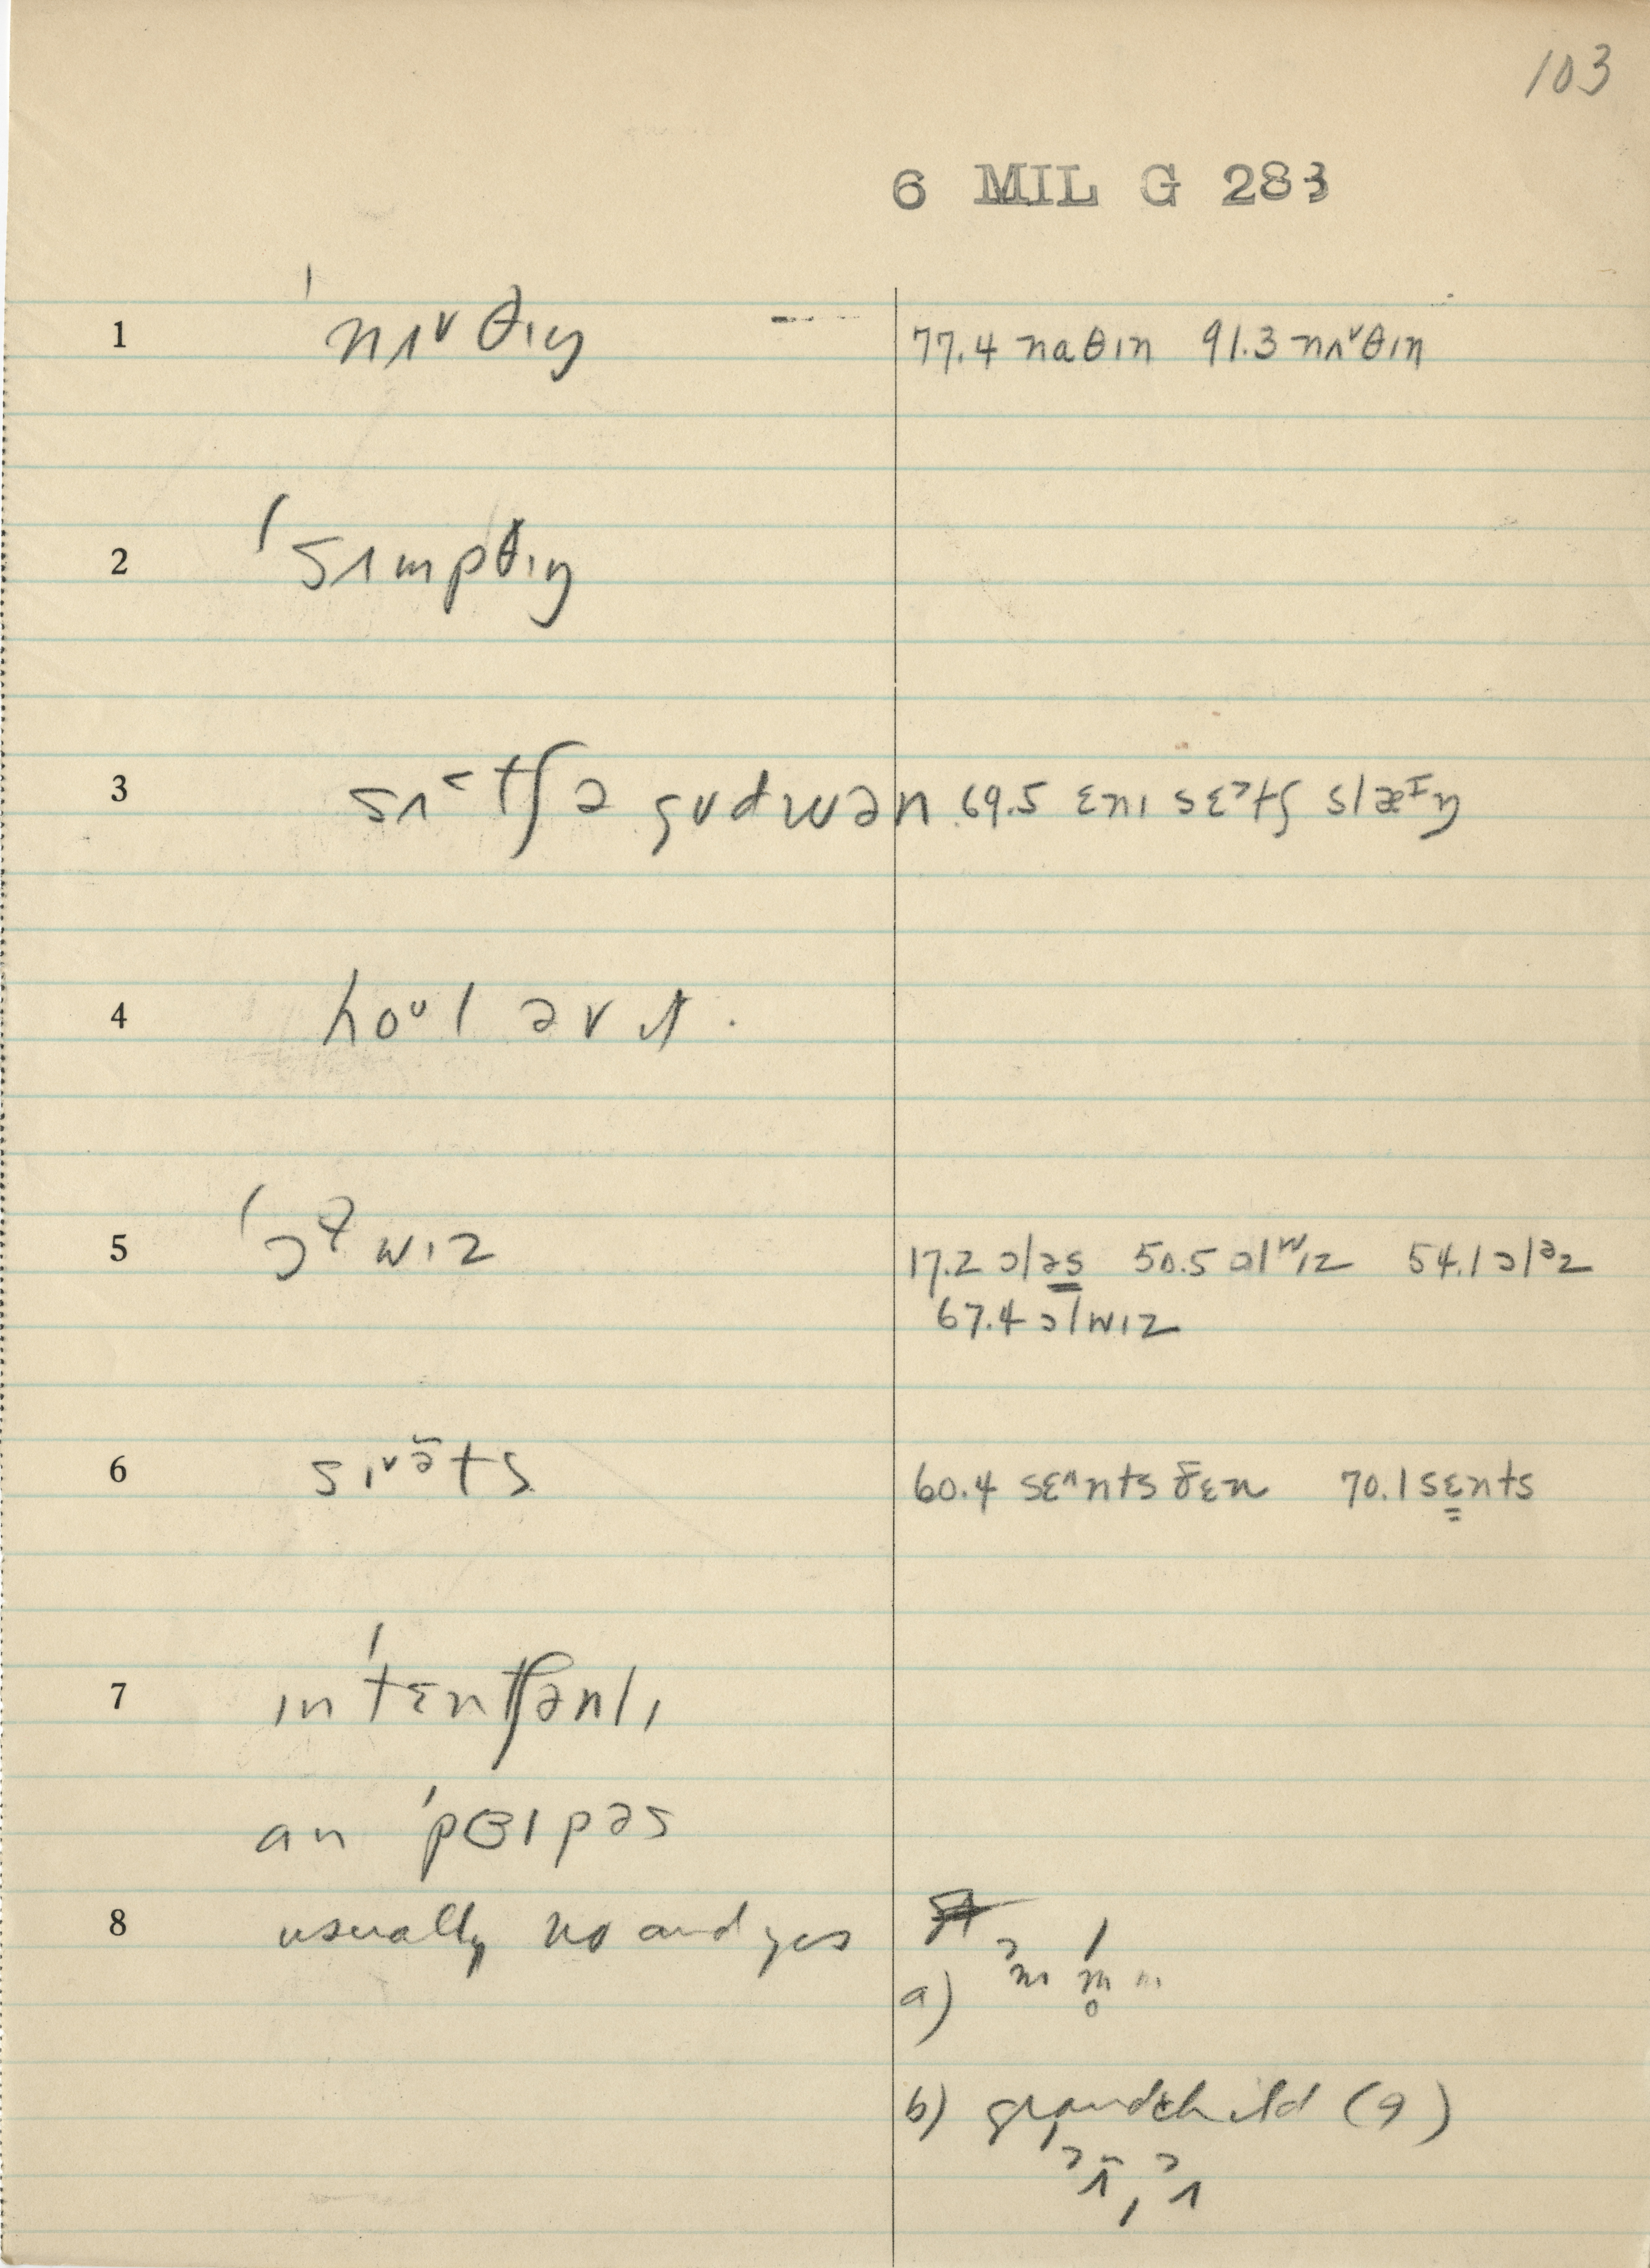 103
6 MIL G 283
1 ˈnʌ˅θɪŋ 77.4 naθɪn 91.3 nʌ˅θɪŋ
2 ˈsʌmpθɪŋ
3 sʌ˂tʃ ə gudwən 69.5 ɛnɪ sɛ˃tʃ slæᶦŋ
4 hoᵘl əv ɪt.
5 17.2 ɔləs 50.5 ɒlʷɪz 54.1 ɔlᵊz
67.4 ɔlwɪz
6 sɪ˅ə̃ts 60.4 sɛ˄nts ðɛn 70.1 sɛnts
7 ɪnˈtɛntʃənlɪ
an ˈpɜɪpəs
8 usually no and yes
a) ˀm ˈm̥m
b) grandchild (9)
ˀʌ̃, ˀʌ